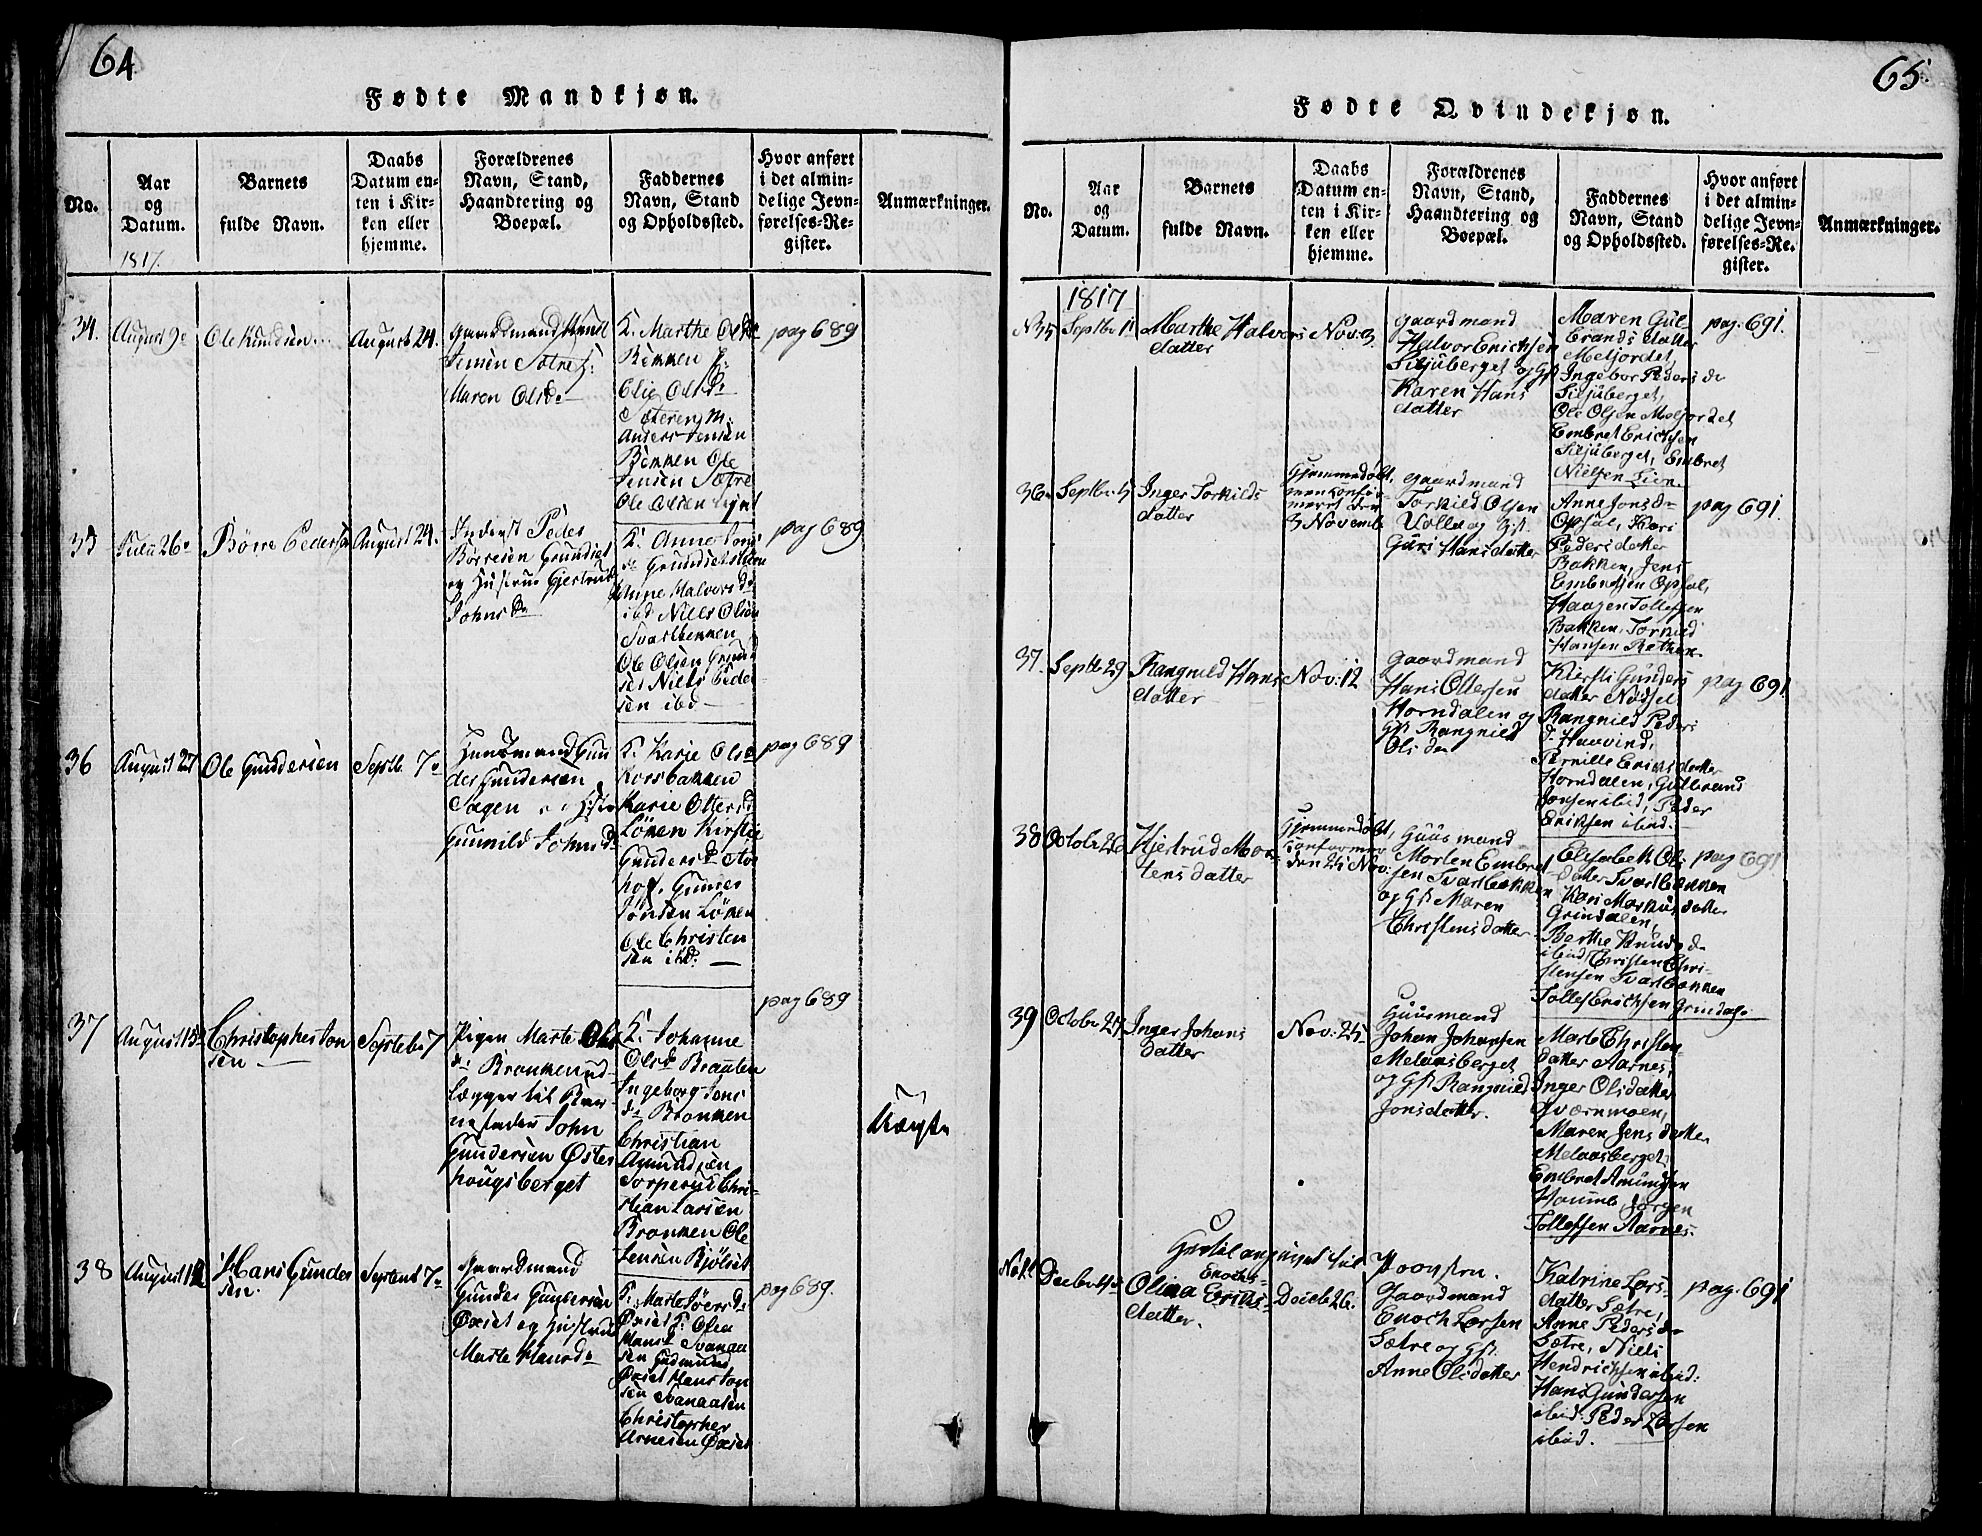 64
Fødte Mandkjøn.
No.
Aar
og
Datum.
Barnets
fulde Navn.
Daabs
Datum en-
ten i Kir-
ken eller
hjemme.
Forældrenes
Navn, Stand,
Haandtering og
Boepæl.
Faddernes
Navn, Stand
og Opholdssted.
Hvor anført
i det almin-
delige Jevn-
førelses-Re-
gister.
Anmærkninger.
1817.
34.
August 9
Ole Knudsen
August 24.
Gaardmand Knud
Jensen Sætre
Maren Olsd
K. Marthe Olsd
Bekken
Olie Olsd
Sæteren M:
Anders Jensen
Bekken Ole
Jensen Sætre
Ole Olsen
pag 689
35
Juli 26
Børre Peders
August 24.
Inderst Peder
Børresen Grundset
og Hustrue Gjertrud
Johnsd
K. Anne Jons
d Grundset
Anne Halvors d
ibd Niels Olsen
Svartbekken
Ole Olsen Grund
set Niels Peder
sen ibd
pag 689
36
August 27
Ole Gundersen
Septb. 7
Huusmand Gun
der Gundersen
Sagen
Gunnild Johnsd
K. Karje Olsd
Korsbakken
Karie Olsersd
Løken Kirstie
Gundersd
Gunder
Jonsen Løken
Ole Christen
sen ibd:
pag 689
37
August 15
Christopher Jon
sen
Septebr 7
Pigen Marte Ols
d Brænken ud-
lægger til Bar
nefader John
Gundersen Øster
hougsberget
K. Johanne
Olsd Braaten
Ingeborg Jons
d Brænken
Christian
Amundsen
Torperud Chri-
stian Larsen
Brænken Ole
Jensen Bjølset
pag 689
Uægte
38
August 12
Hans Gunder
sen.
Septemb 7
Gaardmand
Gunder Gundersen
Øxset og Hustrue
Marte Hansd
K. Marte Iversd
Øxset K. Olea
Hansd Svenaa
sen Gudmund
Øxset Hans Jon
sen Svenaasen
Christopher
Arnesen Øxset
pag 689.
65.
Fødte Qvindekjøn.
No.
Aar
og
Datum.
Barnets
fulde Navn.
Daabs
Datum en-
ten i Kir-
ken eller
hjemme.
Forældrenes
Navn, Stand,
Haandtering og
Boepæl.
Faddernes
Navn, Stand
og Opholdssted.
Hvor anført
i det almin-
delige Jevn-
førelses-Re-
gister.
Anmærkninger.
1817
N 35
Septbr 11
Marthe Halvors
datter
Nov. 3
Gaardmand
Halvor Erichsen
Siljuberget og Gst
Karen Hans
datter
Maren Gul-
brands datter
Meljordet,
Ingebor Peders d
Siljuberget,
Ole Olsen Meljordet
Embret Erichsen
Siljuberget, Embret
Nielsen Lien.
pag. 691.
36
Septbr 5
Inger Torkilds
datter
Hjemmedøbt,
men konfir-
meret den
3 Novemb
Gaardmand
Torkild Olsen
Volle og Gst.
Guri Hansdatter
Anne Jonsd
Opsal, Kari
Pedersdatter
Bakken, Jens
Embretsen Opsal,
Haagen Tollefsen
Bakken, Torkild
Hansen Retten.
pag 691.
37.
Septb 29
Rangnild Hans
datter
Nov. 12
Gaardmand
Hans Ottersen
Horndalen og
Gst Rangnild
Olsda
Kiersti Gunders
datter Nødset
Rangnild Peders
d Haavind,
Pernille Ericksdatter
Horndalen, Gulbrand
Jonsen ibid, Peder
Ericksen ibid.
pag 691
38
Octobr 26
Hjertrud Mor-
tensdatter
Hjemmedøbt,
Konfirmer
den 25 Nov.
Huusmand
Morten Embret-
sen Svartbækken
og Gst Maren
Christensdatter
Elisabeth Ols
datter Svartbækken
Kari Markusdatter
Grindalen,
Berthe Knudsd
ibid, Christen Chri-
stensen Svartbækken
Tollef Erichsen Grindal
pag 691
39
Octobr 25
Inger Johans
datter
Nov. 25
Huusmand
Johan Johansen
Melaasberget
og Gst Rangnild
Jonsdatter.
Marte Christen-
datter Aarnes,
Inger Olsdatter
Qværnmoen,
Maren Jensdatter
Melaasberget,
Embret Amundsen
Joergen
Tollefsen Aarnes.
No 40
Decbr 4
Olina Enochs-
datter.
Decbr 26.
Gaardmand
Enoch Larsen
Sætre og Gst.
Anne Olsdatter
Katrine Lars-
datter Sætre,
Anne Pedersd
Sætre, Niels
Hendrichsen ibid:
Hans Gundersen
ibid. Peder Larsen
ibid.
pag. 691